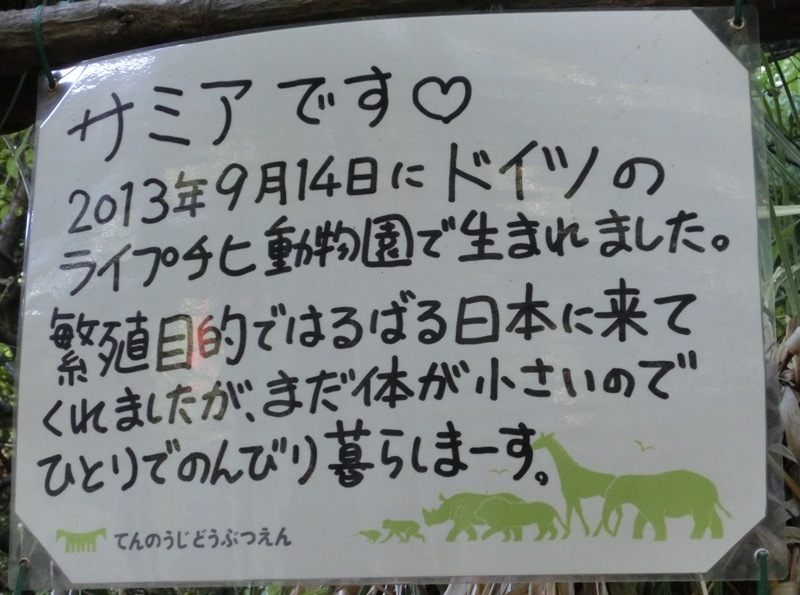 サミアです♡
2013年9月14日にドイツの
ライプチヒ動物園で生まれました。
繁殖目的ではるばる日本に来て
くれましたが、まだ体が小さいので
ひとりでのんびり暮らしまーす。
てんのうじどうぶつえん